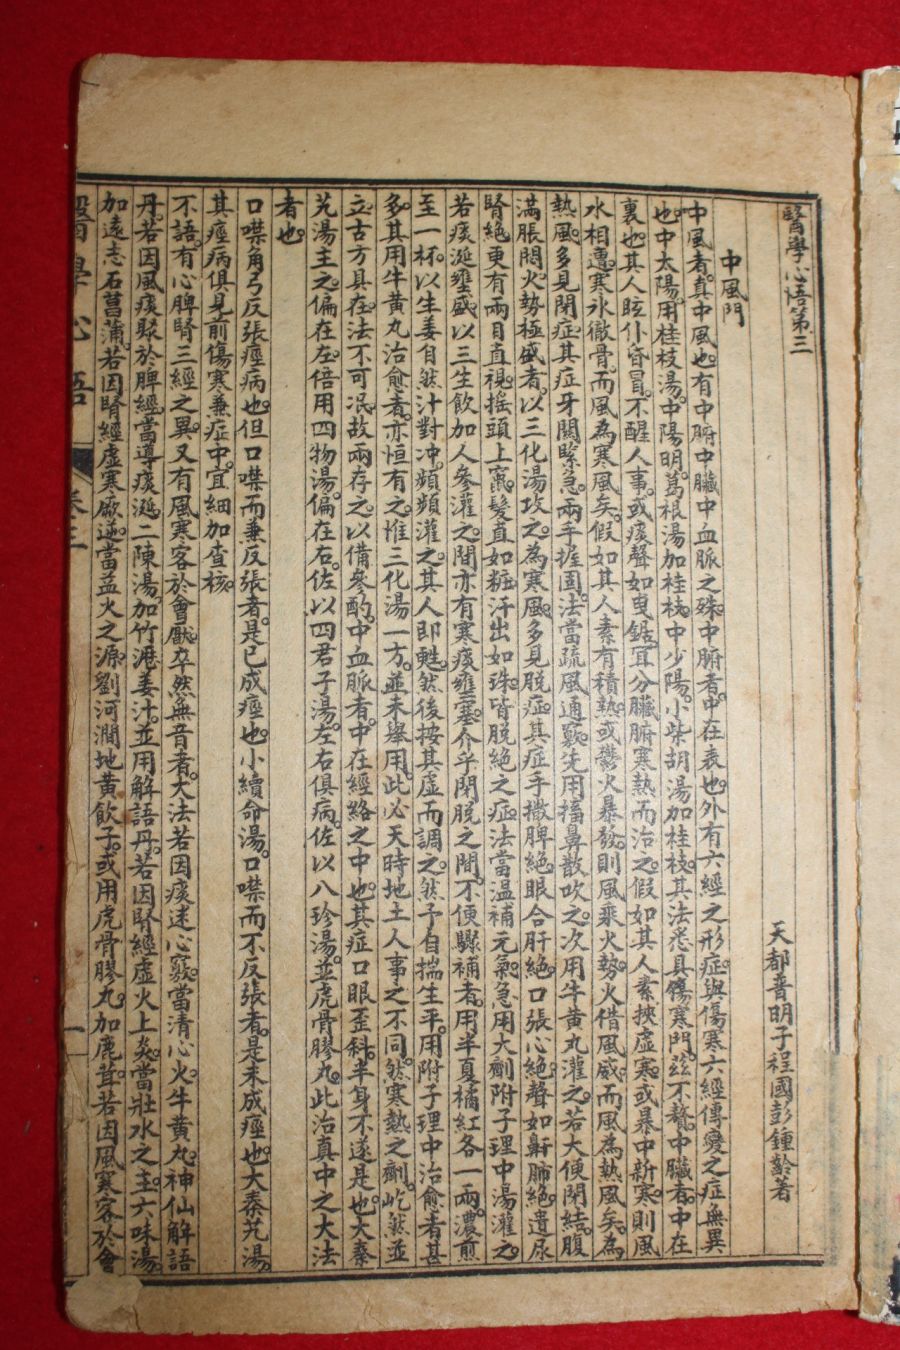 醫學心語第三
天都普明子程國彭鍾齡著
中風門
中風者真中風也有中腑中臟中血脈之殊中腑者中在表也外有六經之形症與傷寒六經傳變之症無異
也中太陽用桂枝湯中陽明葛根湯加桂枝中少陽小柴胡湯加桂枝其法悉具傷寒門茲不贅中臟者中在
裏也其人眩仆昏冒不醒人事或痰聲如曳鋸宜分臟腑寒熱而治之假如其人素挾虛寒或暴中新寒則風
水相遭寒冰徹骨而風為寒風矣假如其人素有積熱或鬱火暴發則風乘火勢火借風威而風為熱風矣為
熱風多見閉症其症牙關緊急兩手握固法當疏風通竅先用搐鼻散吹之次用牛黃丸灌之若大便閉結腹
滿脹悶火勢極盛者以三化湯攻之為寒風多見脫症其症手撒脾絕眼合肝絕口張心絕聲如鼾肺絕遺尿
腎絕更有兩目直視搖頭上竄髮直如粧汗出如珠皆脫絕之症法當溫補元氣急用大劑附子理中湯灌之
若痰涎壅盛以三生飲加人參灌之間亦有寒痰壅塞介乎閉脫之間不便驟補者用半夏橘紅各一兩濃煎
至一杯以生姜自然汁對冲頻頻灌之其人即甦然後按其虛而調之然予自揣生平用附子理中治愈者甚
多其用牛黃丸治愈者亦恒有之惟三化湯一方並未舉用此必天時地土人事之不同然寒熱之劑屹然並
立古方具在法不可泯故兩存之以備參酌中血脈者中在經絡之中也其症口眼歪斜半身不遂是也大秦
艽湯主之偏在左倍用四物湯偏在右佐以四君子湯左右俱病佐以八珍湯並虎骨膠丸此治真中之大法
者也
口噤角弓反張痙病也但口噤而兼反張者是已成痙也小續命湯口噤而不反張者是未成痙也大秦艽湯
其痙病俱見前傷寒兼症中宜細加查核
不語有心脾腎三經之異又有風寒客於會厭卒然無音者大法若因痰迷心竅當清心火牛黃丸神仙解語
丹若因風痰聚於脾經當導痰涎二陳湯加竹瀝姜汁並用解語丹若因腎經虛火上炎當壯水之主六味湯
加遠志石菖蒲若因腎經虛寒厥逆當益火之源劉河澗地黃飲子或用虎骨膠丸加鹿茸若因風寒客於會
醫學心語
卷三
一